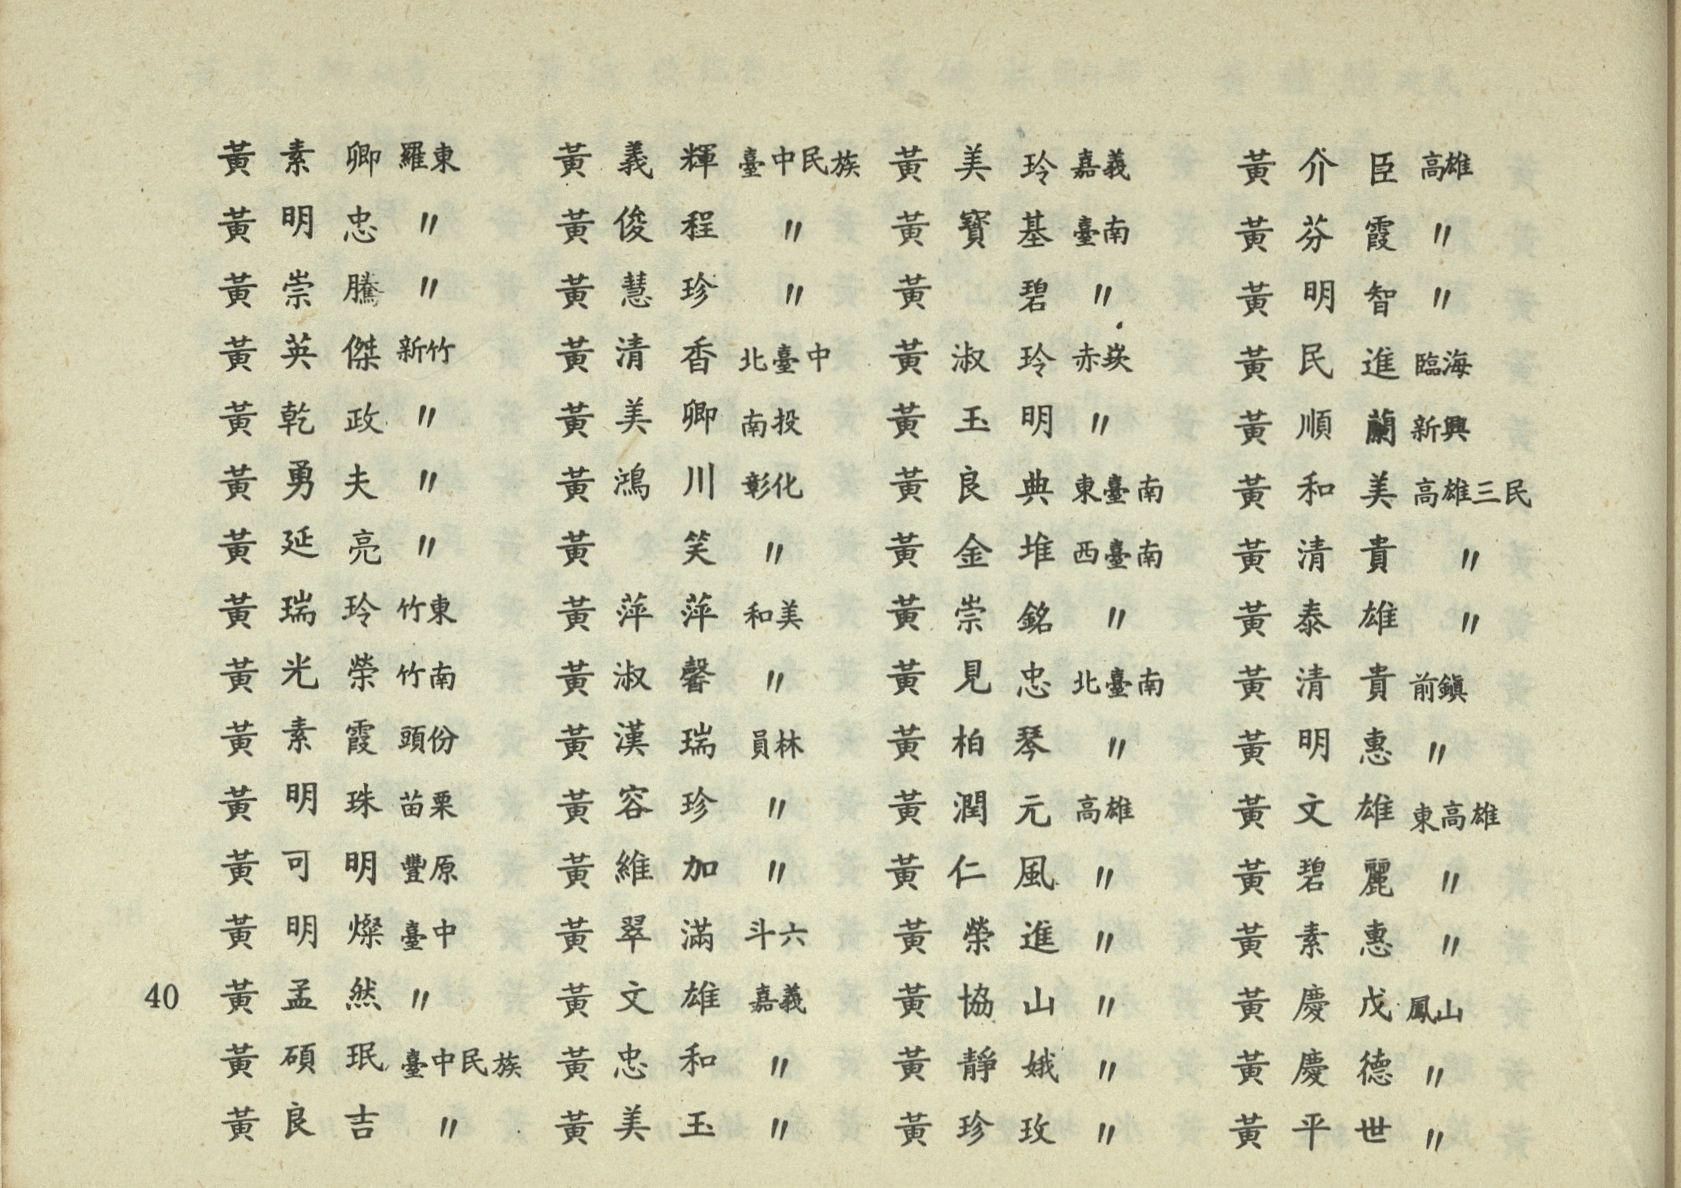 黃素卿 羅東
黃明忠 〃
黃崇騰 〃
黃英傑 新竹
黃乾政 〃
黃勇夫 〃
黃延亮 〃
黃瑞玲 竹東
黃光榮 竹南
黃素霞 頭份
黃明珠 苗栗
黃可明 豐原
黃明燦 臺中
40 黃孟然 〃
黃碩珉 臺中民族
黃良吉 〃
黃義輝 臺中民族
黃俊程 〃
黃慧珍 〃
黃清香 北臺中
黃美卿 南投
黃鴻川 彰化
黃笑 〃
黃萍萍 和美
黃淑馨 〃
黃漢瑞 員林
黃容珍 〃
黃維加 〃
黃翠滿 斗六
黃文雄 嘉義
黃忠和 〃
黃美玉 〃
黃美玲 嘉義
黃寶基 臺南
黃碧 〃
黃淑玲 赤崁
黃玉明 〃
黃良典 東臺南
黃金堆 西臺南
黃崇銘 〃
黃見忠 北臺南
黃柏琴 〃
黃潤元 高雄
黃仁風 〃
黃榮進 〃
黃協山 〃
黃靜娥 〃
黃珍玫 〃
黃介臣 高雄
黃芬霞 〃
黃明智 〃
黃民進 臨海
黃順蘭 新興
黃和美 高雄三民
黃清貴 〃
黃泰雄 〃
黃清貴 前鎮
黃明惠 〃
黃文雄 東高雄
黃碧麗 〃
黃素惠 〃
黃慶戊 鳳山
黃慶德 〃
黃平世 〃